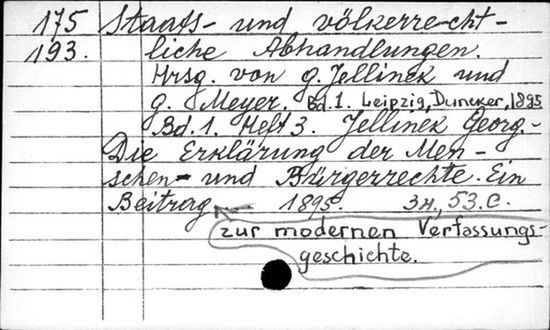 175 Staats- und völkerrecht-
193. liche Abhandlungen.
Hrsg. von G. Jellinek und
G. Meyer. Bd.1. Leipzig, Duncker, 1895
Bd. 1. Heft 3. Jellinek Georg.-
Die Erklärung der Men-
schen- und Bürgerrechte. Ein
Beitrag 1895. 3н., 53.с.
zur modernen Verfassungs-
geschichte.